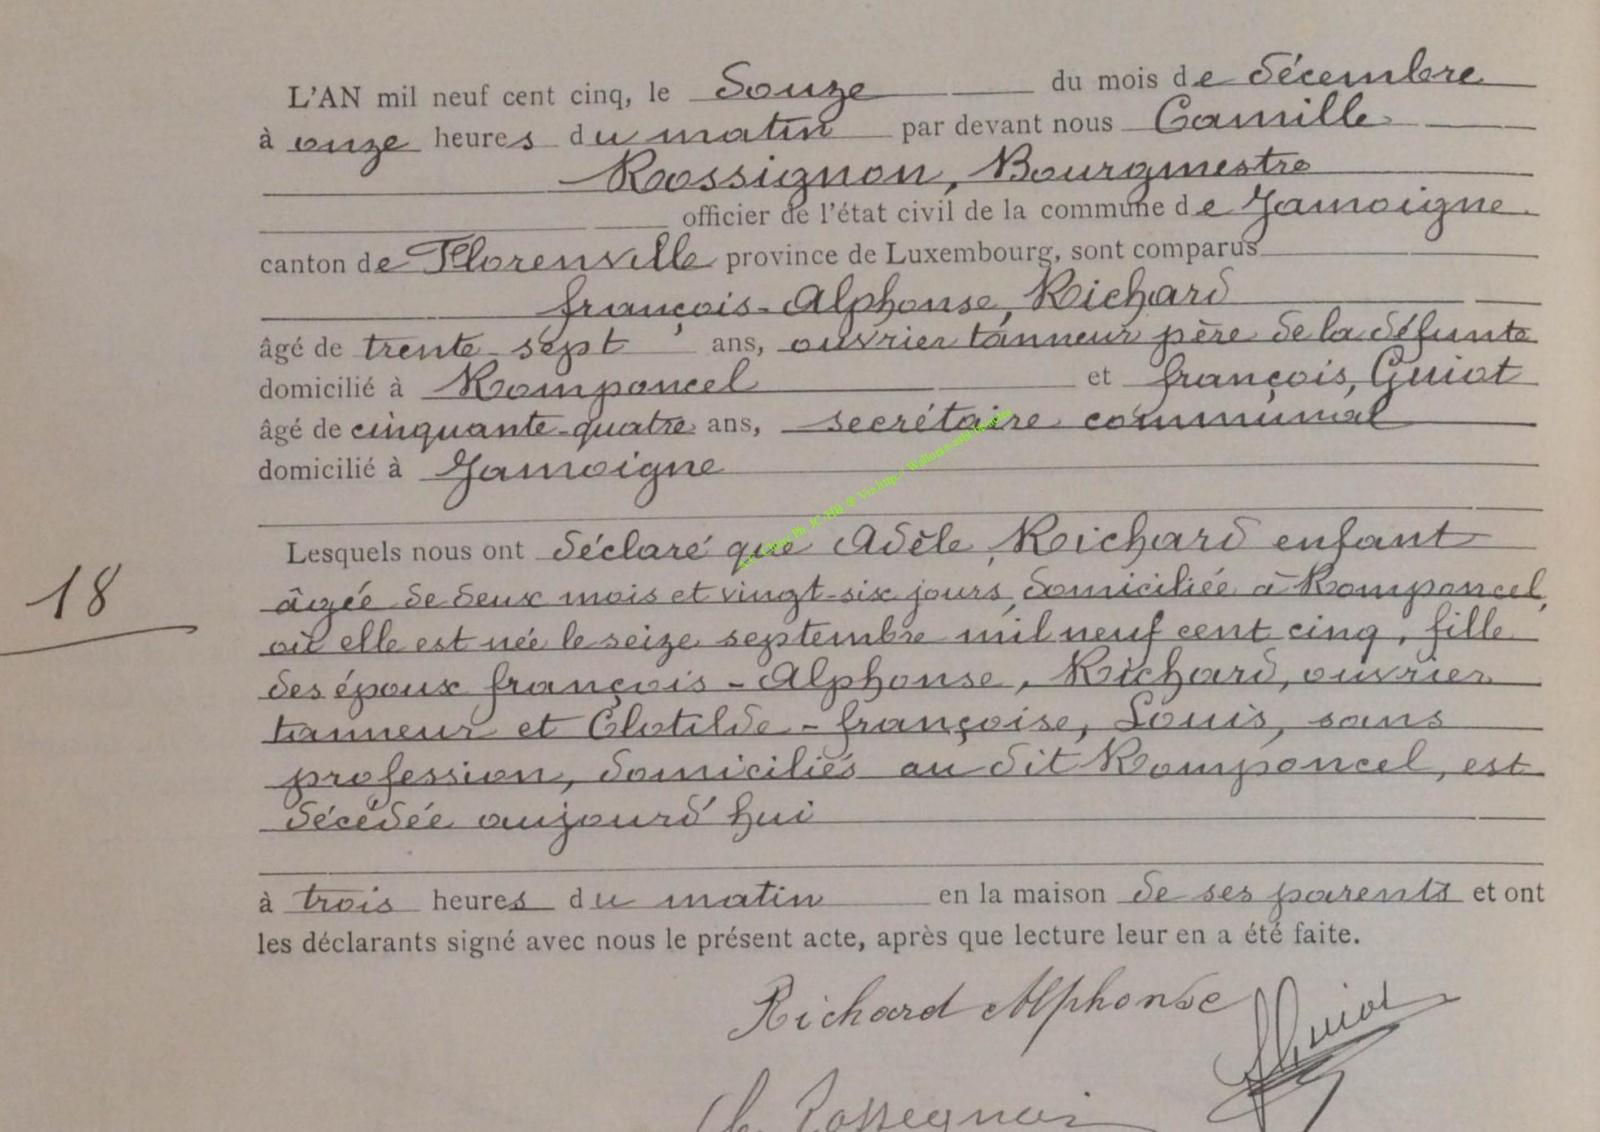 L'AN mil neuf cent cinq, le Douze du mois de décembre
à onze heures du matin par devant nous Camille
Rossignon, Bourgmestre
officier de l'état civil de la commune de Jamoigne
canton de Florenville province de Luxembourg, sont comparus
françois-Alphonse, Richard
âgé de trente-sept ans, ouvrier tanneur père de la défunte
domicilié à Romponcel et françois, Guiot
âgé de cinquante-quatre ans, secrétaire communal
domicilié à Jamoigne
Lesquels nous ont déclaré que Adèle, Richard enfant
18
âgée de deux mois et vingt-six jours, domiciliée à Romponcel,
où elle est née le seize septembre mil neuf cent cinq, fille
des époux françois-Alphonse, Richard, ouvrier
tanneur et Clotilde-françoise, Louis, sans
profession, domiciliés au dit Romponcel, est
décédée aujourd'hui
à trois heures du matin en la maison de ses parents et ont
les déclarants signé avec nous le présent acte, après que lecture leur en a été faite.
Richard Alphonse
F Guiot
C. Rossignon